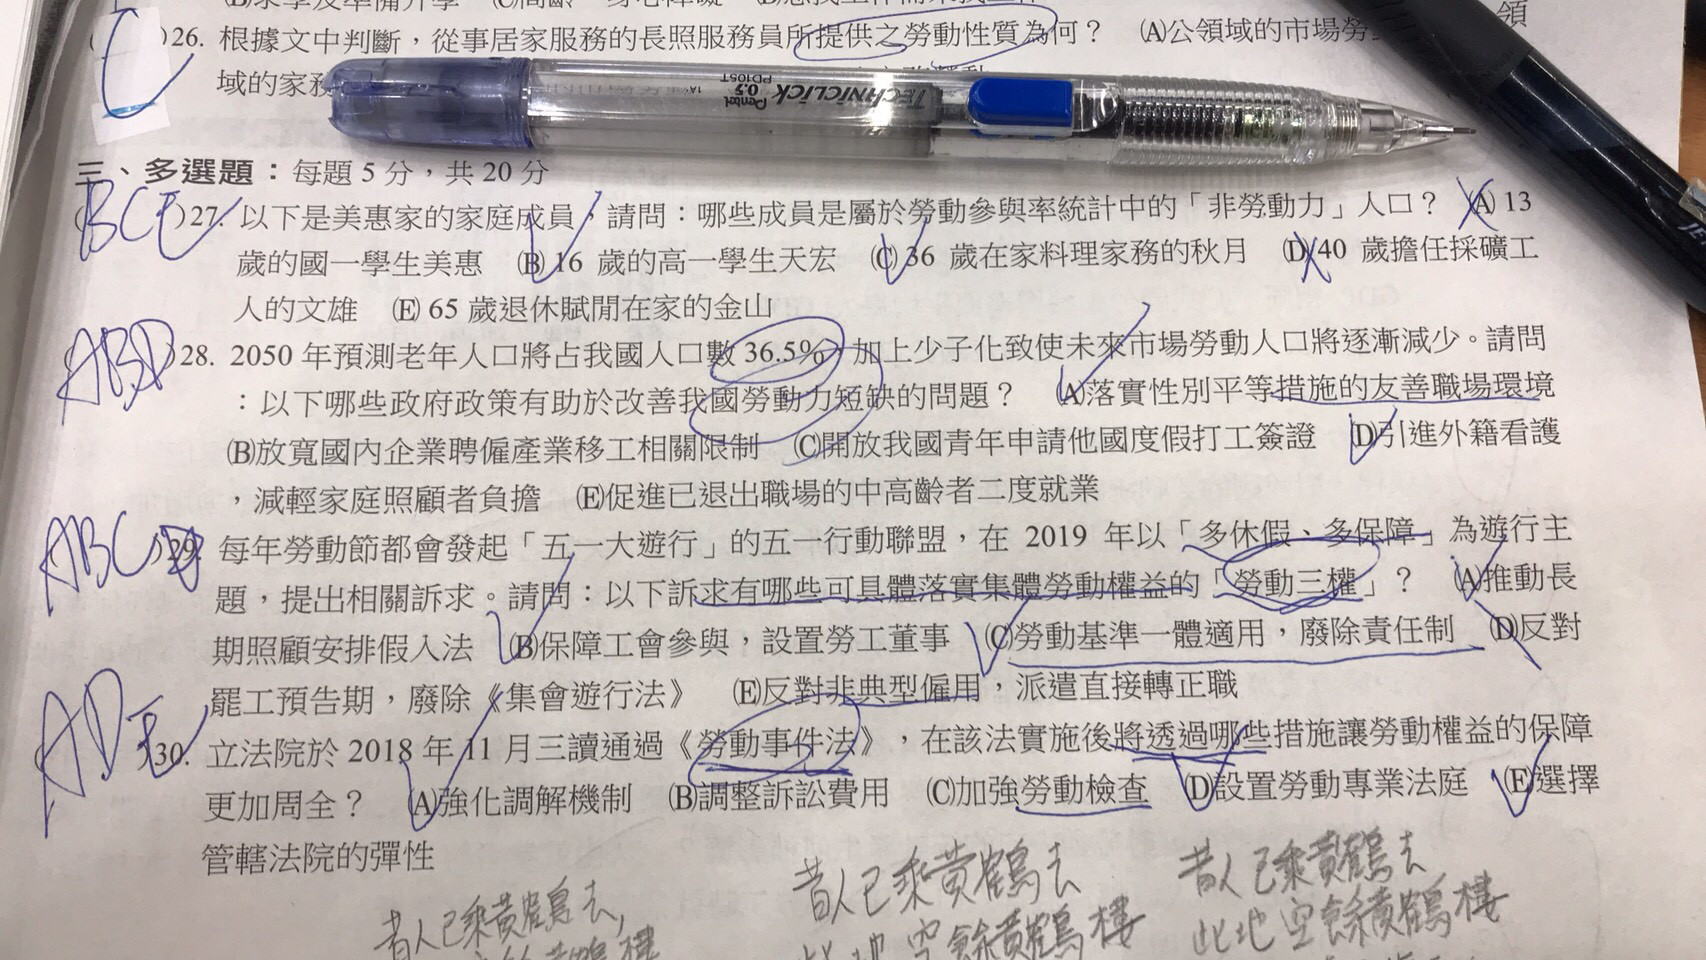 26. 根據文中判斷，從事居家服務的長照服務員所提供之勞動性質為何？ (A)公領域的市場勞
領
域的家務
TECHNICLICK
Pentel 0.5 PD105T
三、多選題：每題 5 分，共 20 分
BCE )27. 以下是美惠家的家庭成員，請問：哪些成員是屬於勞動參與率統計中的「非勞動力」人口？ (A) 13
歲的國一學生美惠 (B) 16 歲的高一學生天宏 (C) 36 歲在家料理家務的秋月 (D) 40 歲擔任採礦工
人的文雄 (E) 65 歲退休賦閒在家的金山
ABD )28. 2050 年預測老年人口將占我國人口數 36.5%，加上少子化致使未來市場勞動人口將逐漸減少。請問
：以下哪些政府政策有助於改善我國勞動力短缺的問題？ (A)落實性別平等措施的友善職場環境
(B)放寬國內企業聘僱產業移工相關限制 (C)開放我國青年申請他國度假打工簽證 (D)引進外籍看護
，減輕家庭照顧者負擔 (E)促進已退出職場的中高齡者二度就業
ABC )29. 每年勞動節都會發起「五一大遊行」的五一行動聯盟，在 2019 年以「多休假、多保障」為遊行主
題，提出相關訴求。請問：以下訴求有哪些可具體落實集體勞動權益的「勞動三權」？ (A)推動長
期照顧安排假入法 (B)保障工會參與，設置勞工董事 (C)勞動基準一體適用，廢除責任制 (D)反對
罷工預告期，廢除《集會遊行法》 (E)反對非典型僱用，派遣直接轉正職
ADE 30. 立法院於 2018 年 11 月三讀通過《勞動事件法》，在該法實施後將透過哪些措施讓勞動權益的保障
更加周全？ (A)強化調解機制 (B)調整訴訟費用 (C)加強勞動檢查 (D)設置勞動專業法庭 (E)選擇
管轄法院的彈性
昔人已乘黃鶴去，
昔人已乘黃鶴去
此地空餘黃鶴樓
昔人已乘黃鶴去
此地空餘黃鶴樓